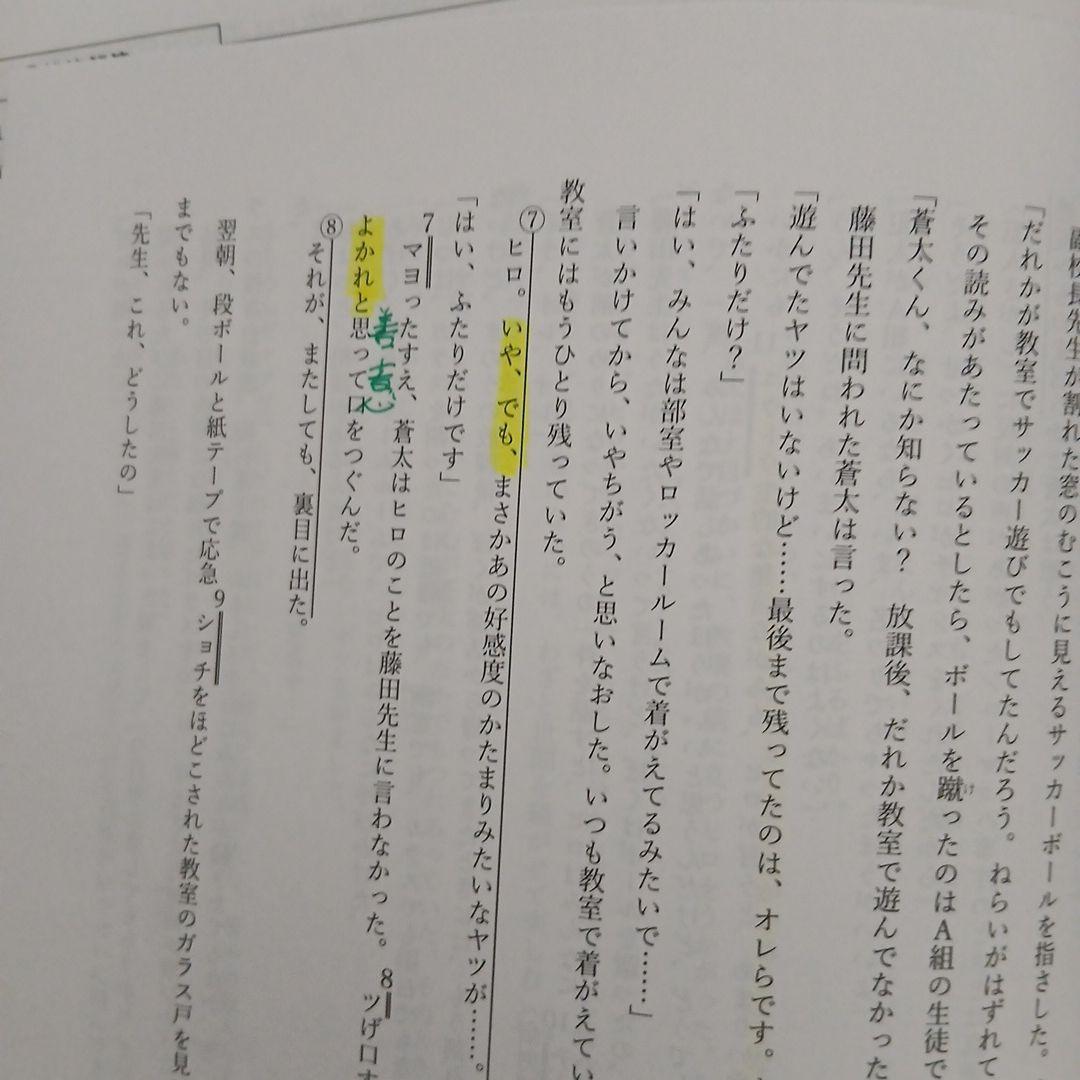 副校長先生が割れた窓のむこうに見えるサッカーボールを指さした。
「だれかが教室でサッカー遊びでもしてたんだろう。ねらいがはずれて
その読みがあたっているとしたら、ボールを蹴ったのはA組の生徒で
け
「蒼太くん、なにか知らない？　放課後、だれか教室で遊んでなかった
藤田先生に問われた蒼太は言った。
「遊んでたヤツはいないけど……最後まで残ってたのは、オレらです。
「ふたりだけ？」
「はい、みんなは部室やロッカールームで着がえてるみたいで……」
言いかけてから、いやちがう、と思いなおした。いつも教室で着がえてい
教室にはもうひとり残っていた。
⑦ヒロ。いや、でも、まさかあの好感度のかたまりみたいなヤツが……。
「はい、ふたりだけです」
7マヨったすえ、蒼太はヒロのことを藤田先生に言わなかった。8ツげ口す
善意
よかれと思って口をつぐんだ。
⑧それが、またしても、裏目に出た。
翌朝、段ボールと紙テープで応急9ショチをほどこされた教室のガラス戸を見
までもない。
「先生、これ、どうしたの」